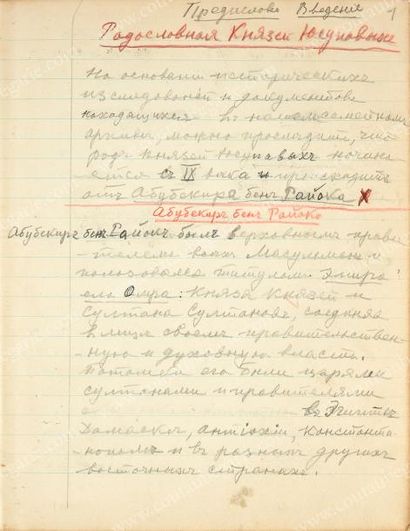 Предисловие Введение 1
Родословная Князей Юсуповых
На основании историческихъ
изследованій и документовъ
находящихся въ нашемъ семейномъ
архивѣ, можно проследить, что
родъ Князей Юсуповыхъ начина
ется съ IX вѣка и происходитъ
отъ Абубекира бенъ Райока X
Абубекиръ бенъ Райокъ
Абубекиръ бенъ Райокъ былъ верховнымъ прави
-телемъ всѣхъ Мусульманъ и
пользовался титуломъ Эмира
ель Омра: Князя Князей и
Султана Султановъ, соединяя
въ лицѣ своемъ правительствен-
ную и духовную власть.
Потомки его были царями
султанами и правителями
въ Египтѣ
Дамаскѣ, Антіохіи, Константи-
нополѣ и въ разныхъ другихъ
восточныхъ странахъ.